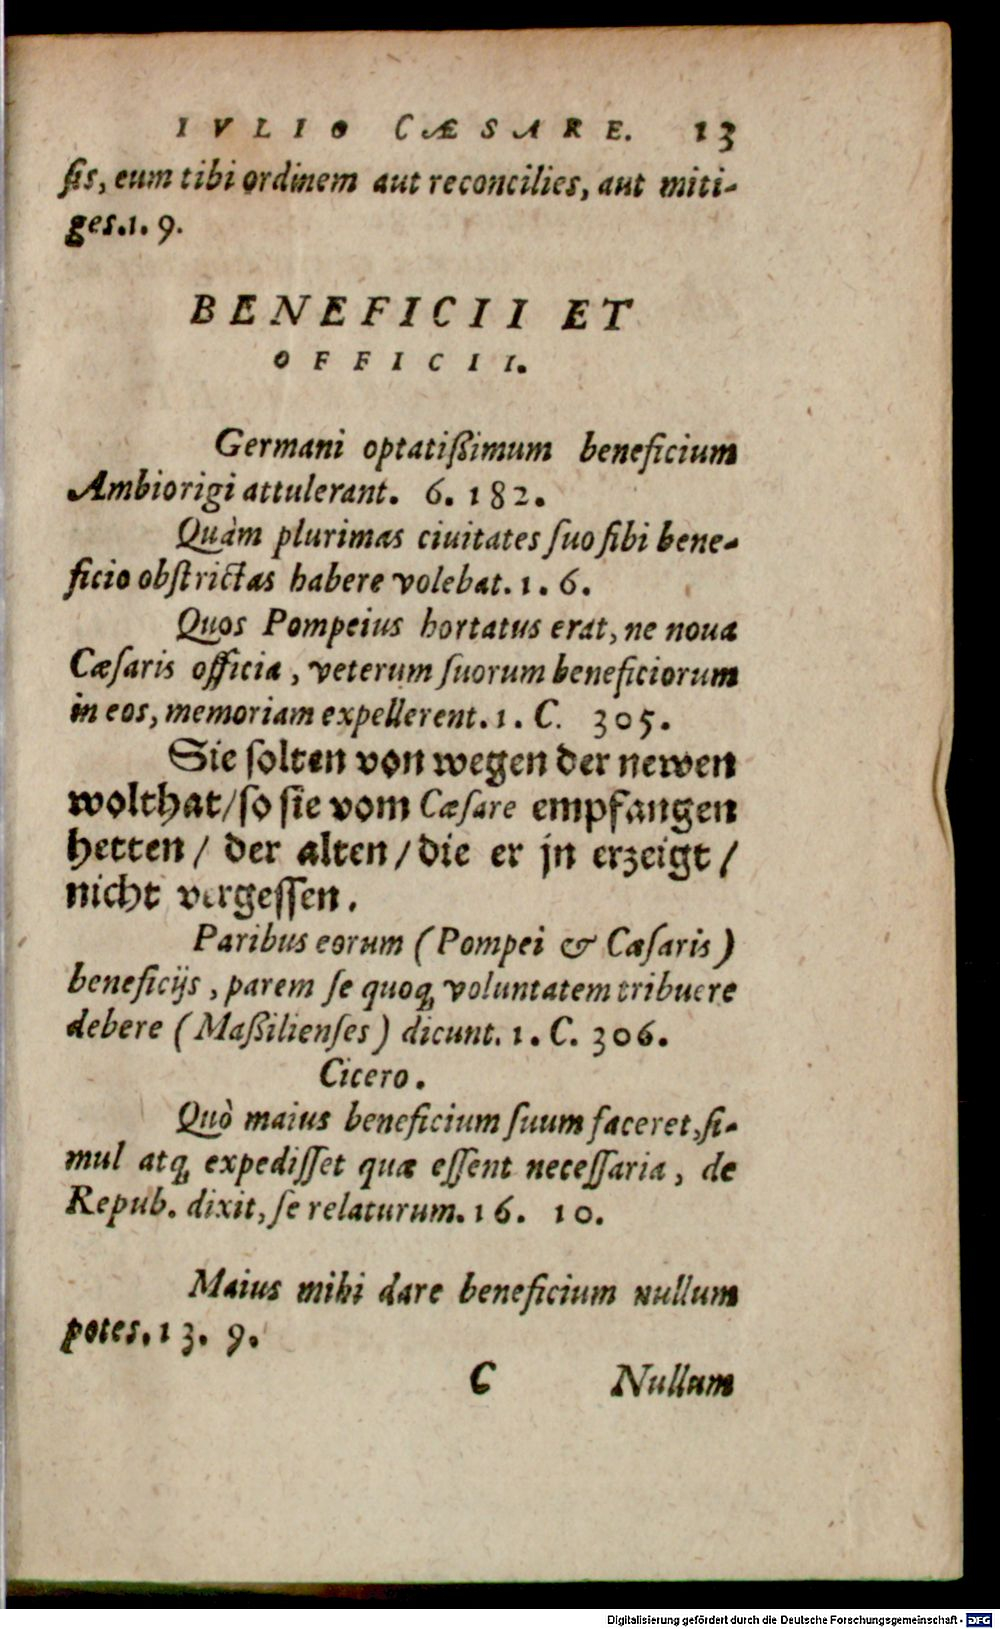 IVLIO CÆSARE. 13
ſis, eum tibi ordinem aut reconcilies, aut miti-
ges.1. 9.
BENEFICII ET
OFFICII.
Germani optatißimum beneficium
Ambiorigi attulerant. 6. 182.
Quàm plurimas ciuitates ſuo ſibi bene-
ficio obſtrictas habere volebat. 1. 6.
Quos Pompeius hortatus erat, ne noua
Cæſaris officia, veterum ſuorum beneficiorum
in eos, memoriam expellerent. 1. C. 305.
Sie ſolten von wegen der newen
wolthat/ſo ſie vom Cæſare empfangen
hetten/ der alten/die er jn erzeigt/
nicht vergeſſen.
Paribus eorum (Pompei & Cæſaris)
beneficijs, parem ſe quoq; voluntatem tribuere
debere (Maßilienſes) dicunt. 1. C. 306.
Cicero.
Quò maius beneficium ſuum faceret, ſi-
mul atq; expediſſet quæ eſſent neceſſaria, de
Repub. dixit, ſe relaturum. 16. 10.
Maius mihi dare beneficium nullum
potes. 13. 9.
C Nullum
Digitalisierung gefördert durch die Deutsche Forschungsgemeinschaft - DFG